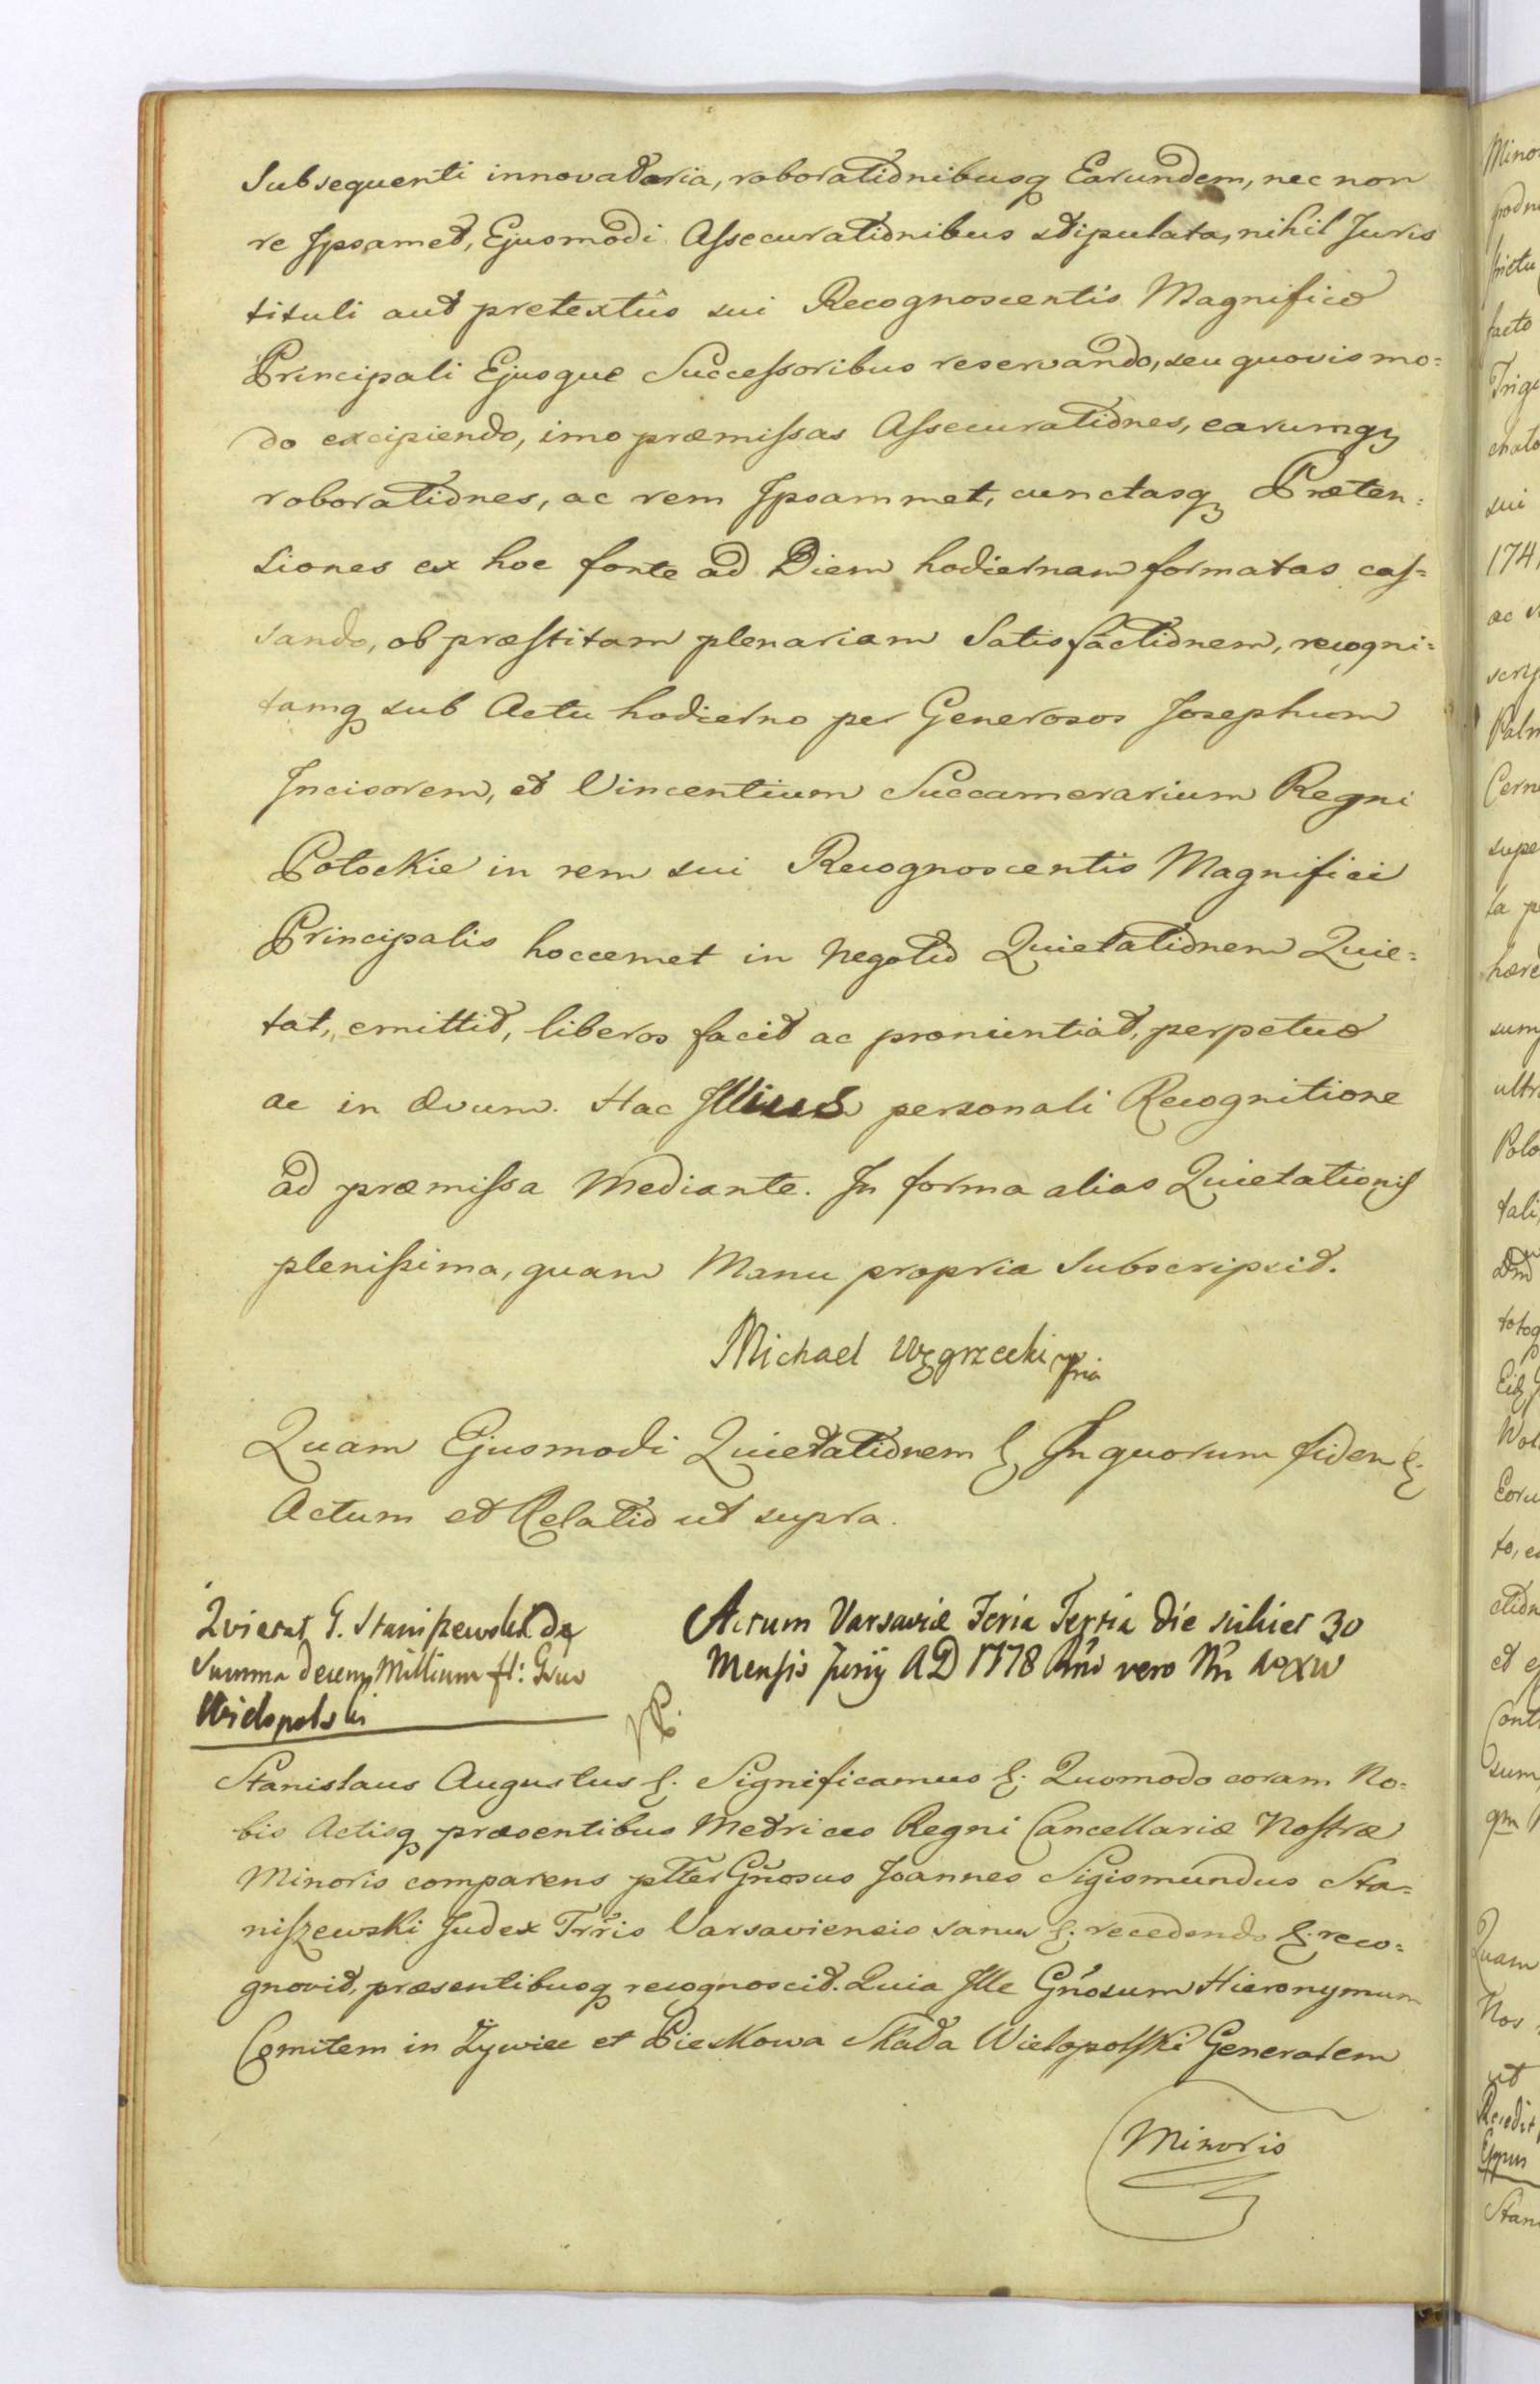 Subsequenti innovatoria, roborationibusq Earundem, nec non
re Ipsamet, Ejusmodi Assecurationibus stipulata, nihil Juris
tituli aut pretextûs sui Recognoscentis Magnifico
Principali Ejusque Successoribus reservando, seu quovis mo=
do excipiendo, imo præmissas Assecurationes, earumq
roborationes, ac rem Ipsammet, cunctasq Præten=
siones ex hoc fonte ad Diem hodiernam formatas cas=
sando, ob præstitam plenariam Satisfactionem, recogni=
tamq sub Actu hodierno per Generosos Josephum
Incisorem, et Vincentium Succamerarium Regni
Potockie in rem sui Recognoscentis Magnifici
Principalis hoccemet in Negotio Quietationem Quie=
tat, emittit, liberos facit ac pronuntiat, perpetuo
ac in ævum. Hac Illius personali Recognitione
ad præmissa Mediante. In forma alias Quietationis
plenissima, quam Manu propria Subscripsit.
Michael Węgrzecki mpria
Quam Ejusmodi Quietationem &. In quorum fidem &.
Actum et Relatio ut supra.
Quietat G. Staniszewski de
Summa decem Millium fl: Gnr
Wielopolski
Actum Varsaviæ Feria Tertia Die scilicet 30
Mensis Junij AD 1778 Rñi vero Nri
Stanislaus Augustus &. Significamus &. Quomodo coram No=
bis Actisq præsentibus Metrices Regni Cancellariæ Nostræ
Minoris comparens pltter Gñosus Joannes Sigismundus Sta=
niszewski Judex Trris Varsaviensis sanus &. recedendo &. reco=
gnovit, præsentibusq recognoscit. Quia Ille Gñosum Hieronymum
Comitem in Żywiec et Pieskowa Skała Wielopolski Generalem
Minoris